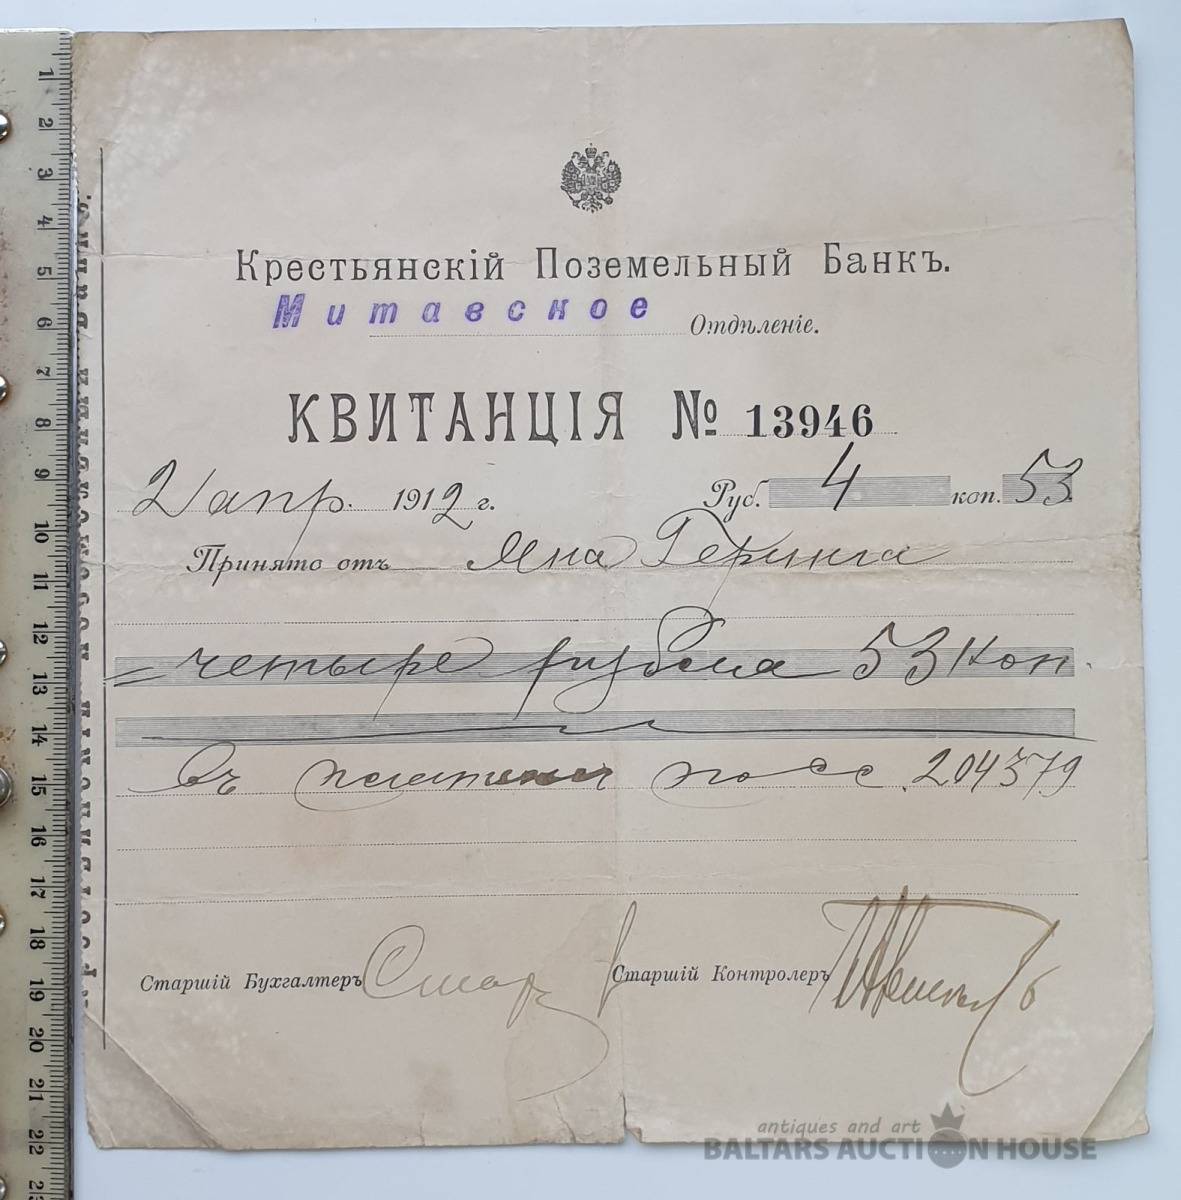 Крестьянскій Поземельный Банкъ.
Митавское Отдѣленіе.
КВИТАНЦІЯ № 13946
2 апр. 1912 г. Руб. 4 коп. 53
Принято отъ Яна Геринга
= четыре рубля 53 коп.
въ платежи по сс. 204379
Старшій Бухгалтеръ Старшій Контролеръ
antiques and art
BALTARS AUCTION HOUSE
1
2
3
4
5
6
7
8
9
10
11
12
13
14
15
16
17
18
19
20
21
22